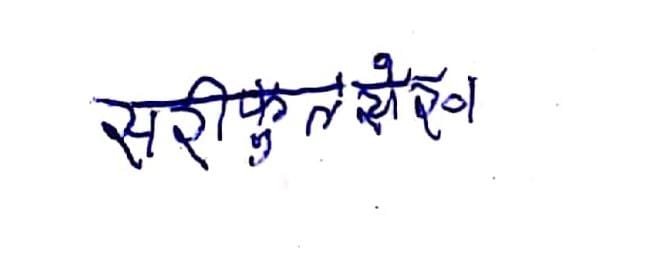 सरीफुल सेख